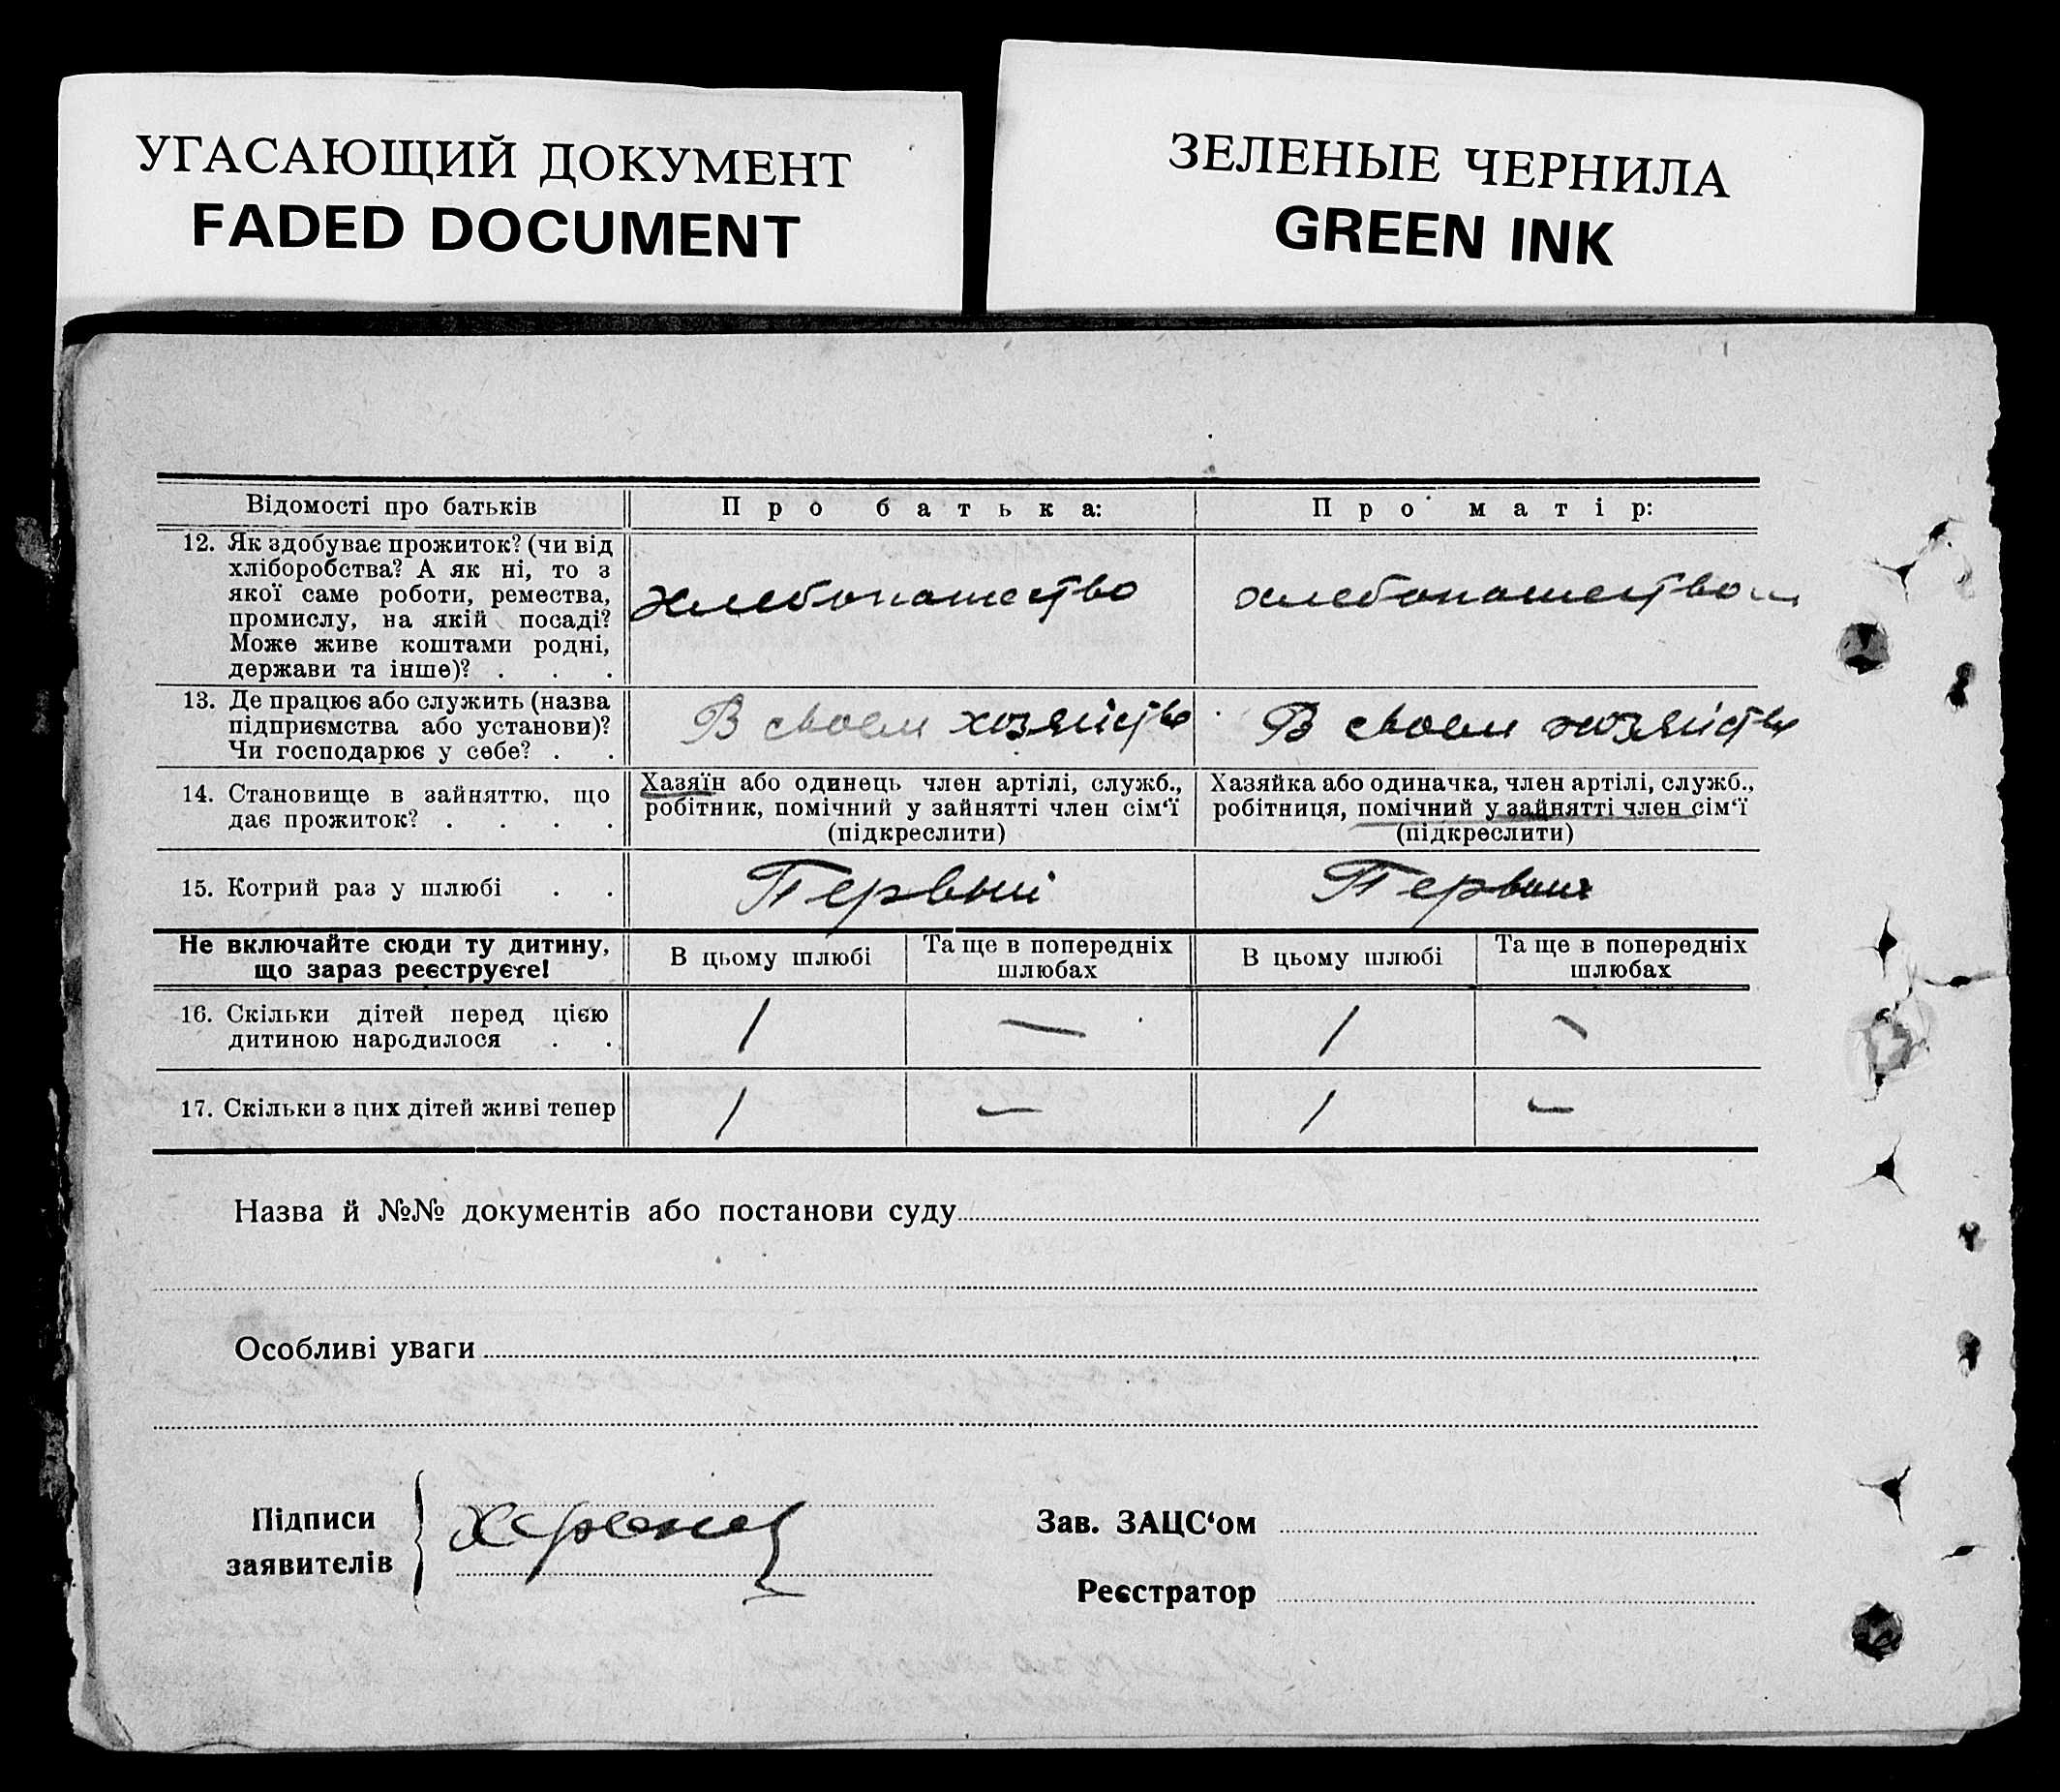 УГАСАЮЩИЙ ДОКУМЕНТ
FADED DOCUMENT
ЗЕЛЕНЫЕ ЧЕРНИЛА
GREEN INK
Відомості про батьків
Про батька:
Про матір:
12. Як здобуває прожиток? (чи від
хліборобства? А як ні, то з
якої саме роботи, ремества,
промислу, на якій посаді?
Може живе коштами родні,
держави та інше)? . . .
Хлебопашество
Хлебопашеством
13. Де працює або служить (назва
підприємства або установи)?
Чи господарює у себе? . .
В своем хозяйстве
В своем хозяйстве
14. Становище в зайняттю, що
дає прожиток? . . . .
Хазяїн або одинець член артілі, служб.,
робітник, помічний у зайнятті член сім‘ї
(підкреслити)
Хазяйка або одиначка, член артілі, служб.,
робітниця, помічний у зайнятті член сім‘ї
(підкреслити)
15. Котрий раз у шлюбі . .
Первый
Первый
Не включайте сюди ту дитину,
що зараз реєструєте!
В цьому шлюбі
Та ще в попередніх
шлюбах
В цьому шлюбі
Та ще в попередніх
шлюбах
16. Скільки дітей перед цією
дитиною народилося . .
1 — 1 —
17. Скільки з цих дітей живі тепер
1 — 1 —
Назва й №№ документів або постанови суду
Особливі уваги
Підписи
заявителів
Зав. ЗАЦС‘ом
Реєстратор